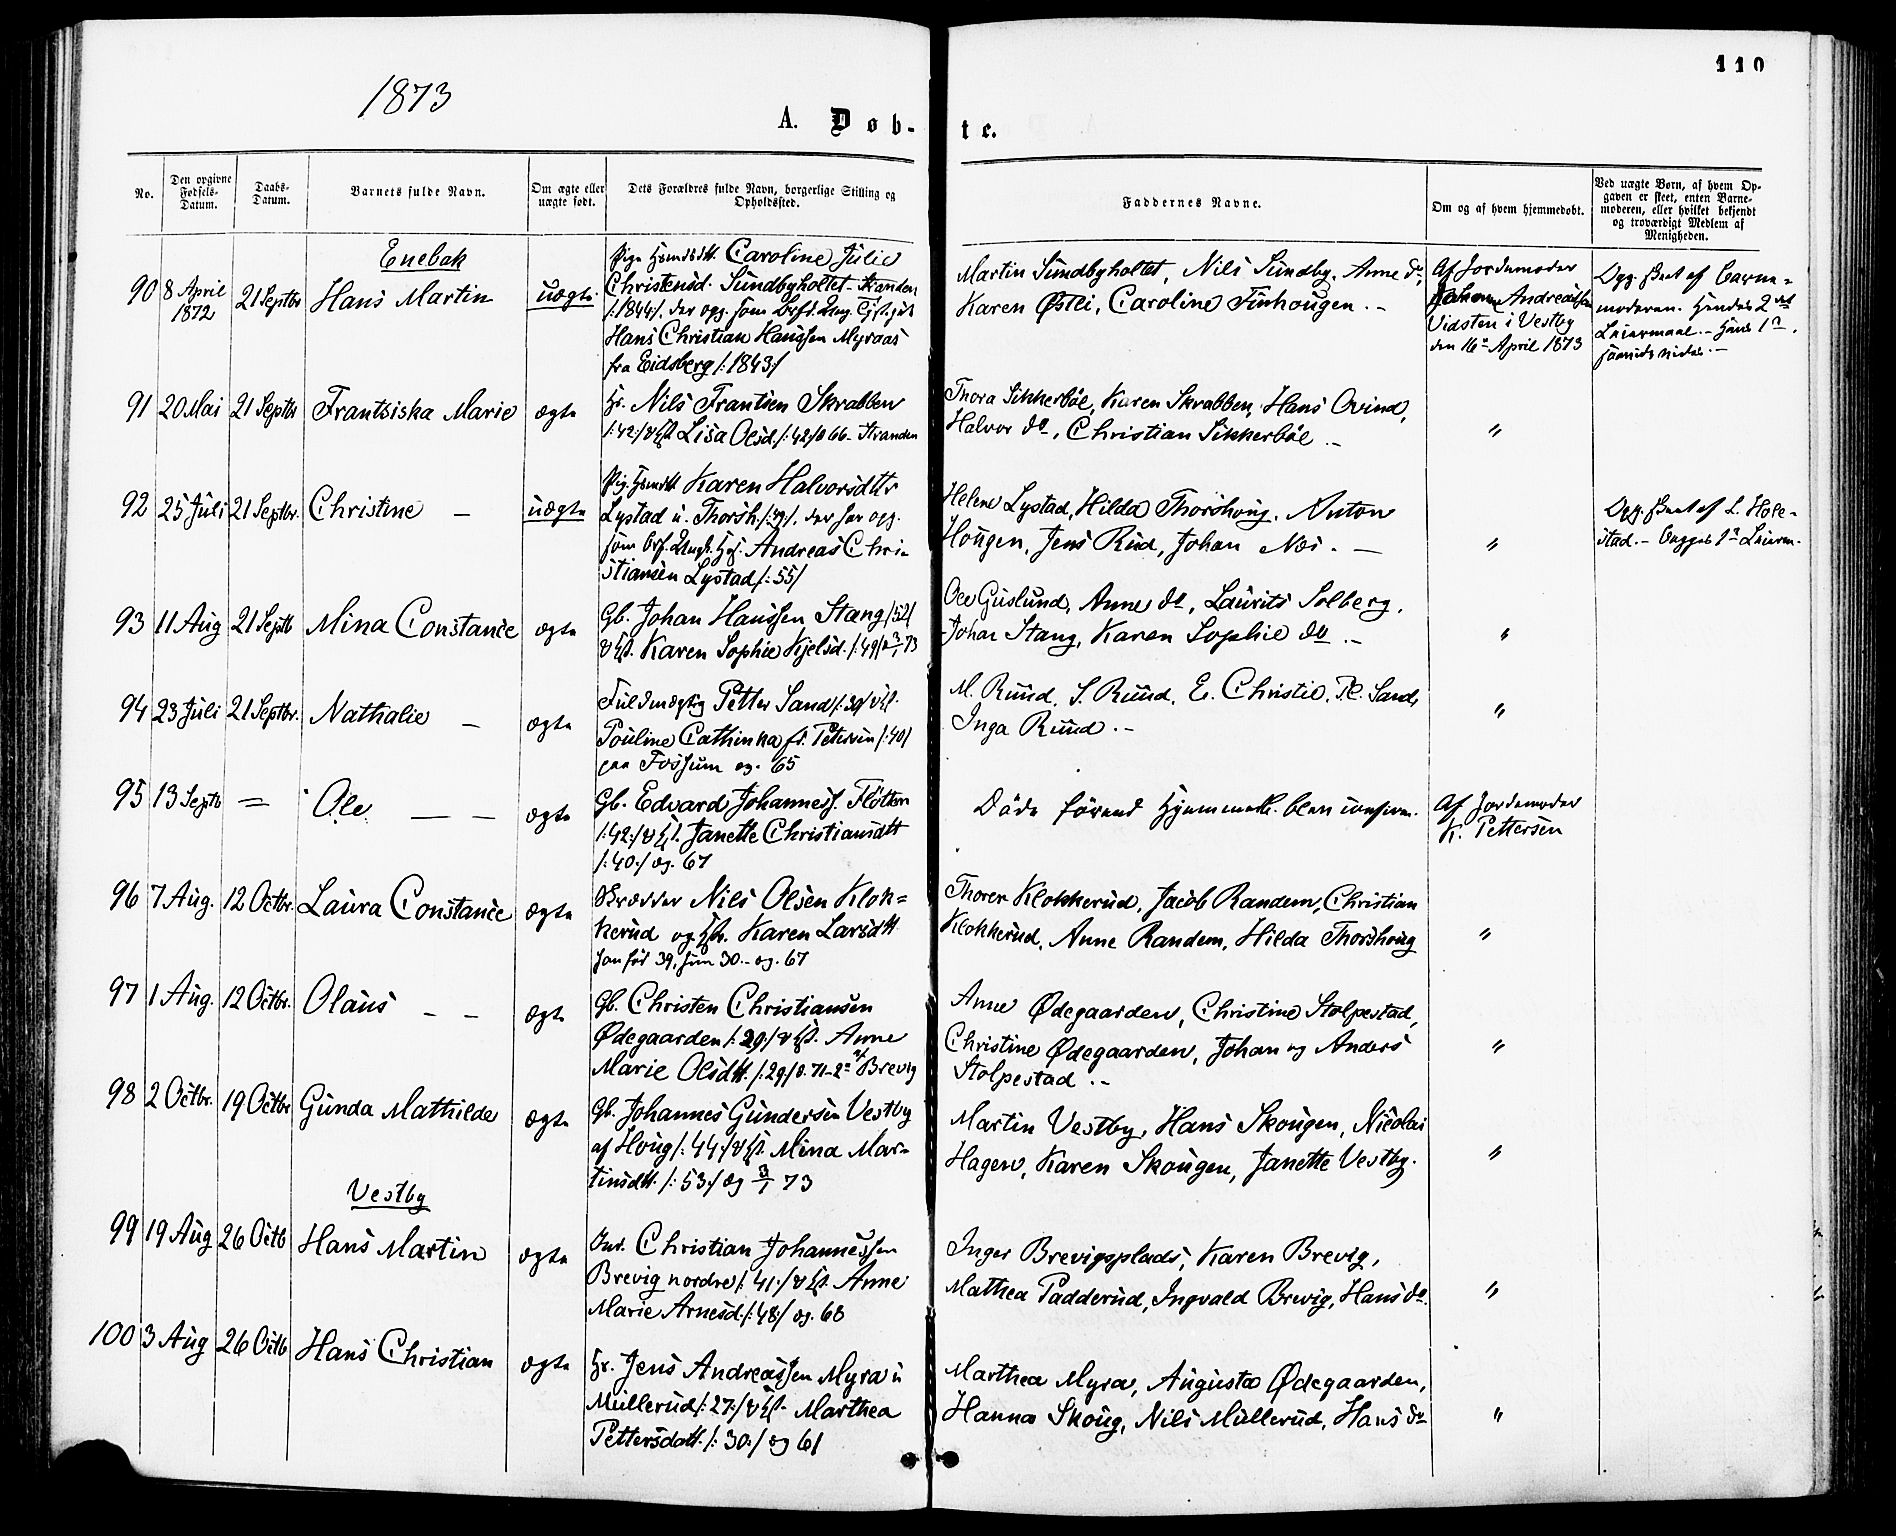 110
1873
A. Døb-
te.
No.
Den opgivne Fødsels-Datum.
Daabs-Datum.
Barnets fulde Navn.
Om ægte eller uægte født.
Dets Forældres fulde Navn, borgerlige Stilling og Opholdssted.
Faddernes Navne.
Om og af hvem hjemmedøbt.
Ved uægte Børn, af hvem Opgaven er skeet, enten Barnemoderen, eller hvilket bekjendt og troværdigt Medlem af Menigheden.
Enebak
90 8 April 1872 21 Septbr Hans Martin uægte
Caroline Julie
Christensd. Sundbyholtet - Stranden
/:1844/. der opg. som
Hans Christian Hanssen Myraas
fra Eidsberg /:1843/
Martin Sundbyholtet, Nils Sundby, Anne do,
Karen Østli, Caroline Finhougen. -
Af Jordemoder
Andreassen
Vidsten i Vestby
den 16de April 1873
Opg. skeet af Barne=
moderen. Hendes 2det
Leiermaal. - Hans 1ste
91 20 Mai 21 Septbr Frantsiska Marie ægte
Nils Frantsen Skrabben
/:42:/ & Lisa Olsd. /:42/ 66 - Stranden
Thora Sikkerböe, Karen Skrabben, Hans Ovind,
Halvor do, Christian Sikkerböe -
"
92 25 Juli 21 Septbr. Christine - uægte
Karen Halvorsdttr
Lystad u. Thorsh. /:49/. der har opg.
som Andreas Chri-
stiansen Lystad /:55/
Helene Lystad, Hilda Thorshoug, Anton
Hougen, Jens Rud, Johan Næs. -
"
Opg. skeet af L. Hole-
stad. - Begges 1ste Leierm.
93 11 Aug 21 Septb Mina Constance ægte
Gb. Johan Hanssen Stang /52/
& Karen Sophie Kjelsd. /:49/ 73
Ole Guslund, Anne do, Laurits Solberg,
Johan Stang, Karen Sophie do -
"
94 23 Juli 21 Septbr. Nathalie - ægte
Fuldmægtig Petter Sand /:39/ &
Pouline Cathinka f. Petersen /:40/
paa Fossum æg. 65
M. Ruud, S. Ruud, E. Christie, P. Sand,
Inga Ruud. -
"
95 13 Septb = Ole - - ægte
Gb. Edvard Johanness. Fløtten
/:42:/ & Janette Christiansdtt
/:40:/ æg. 67
Döde förend Hjemmed. blev confirm.
Af Jordemoder
K. Pettersen
96 7 Aug. 12 Octbr. Laura Constance ægte
Nils Olsen Klok=
kerud og Karen Larsdtt
han föd 39, hun 30. - æg. 67
Thorer Klokkerud, Jacob Randem, Christian
Klokkerud, Anne Randem, Hilda Thorshoug
"
97 1 Aug. 12 Octbr. Olaus - - ægte
Gb. Christen Christiansen
Ødegaarden /:29:/ & Anne
Marie Olsdtt. /:29/ æ. 71 - 2de af Brevig
Anne Ødegaarden, Christine Stolpestad,
Christine Ødegaarden, Johan og Anders
Stolpestad. -
"
98 2 Octbr. 19 Octbr Gunda Mathilde ægte
Gb. Johannes Gundersen Vestby
af Houg /:44:/ & Mina Mar-
tinsdtt. /:53:/ æg 3/1 73
Martin Vestby, Hans Skougen, Nicolai
Hagen, Karen Skougen, Janette Vestby.
"
Vestby
99 19 Aug 26 Octb Hans Martin ægte
Christian Johannessen
Brevig nordre /:41:/ & Anne
Marie Arnesd. /:48/ æg. 68
Inger Brevigsplads, Karen Brevig,
Mathea Padderud, Ingvald Brevig, Hans do.
"
100 3 Aug 26 Octb Hans Christian ægte
Jens Andreassen Myra u
Mullerud /:27:/ & Marthea
Pettersdatt. /:30:/ æg 61
Marthea Myra, Augusta Ødegaarden,
Hanna Skoug, Nils Mullerud, Hans do
"